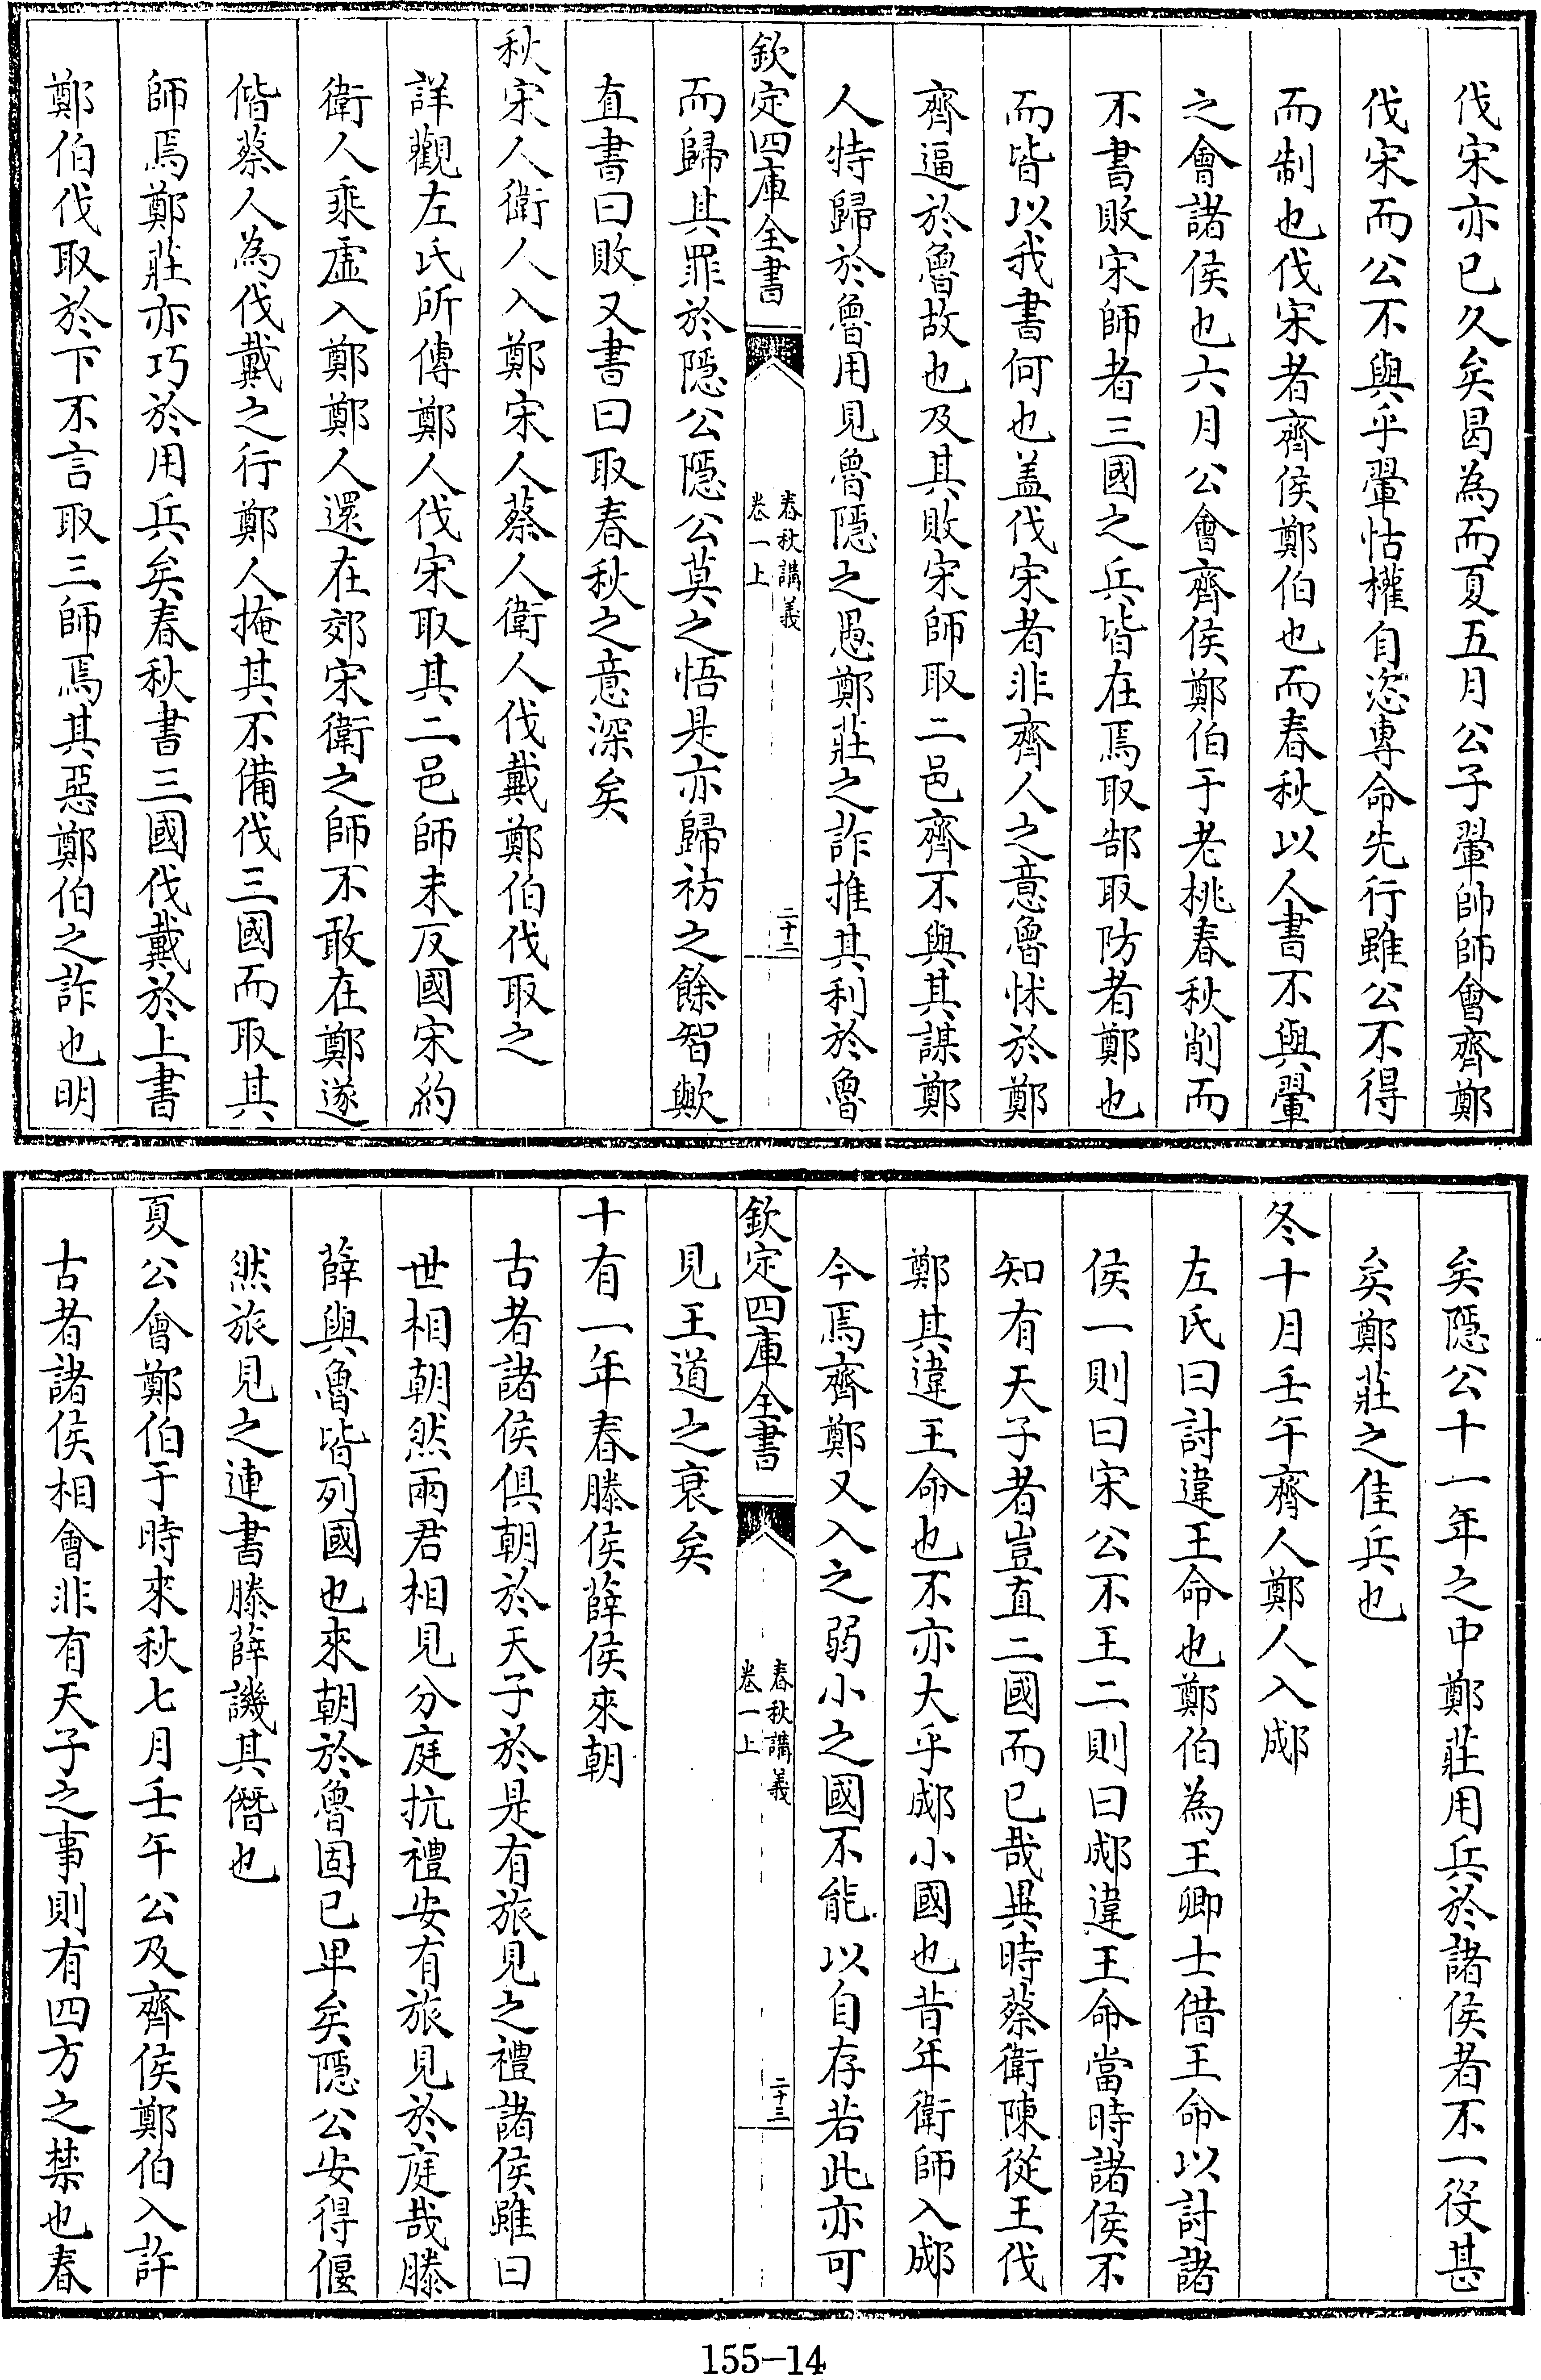 伐宋亦已久矣曷為而夏五月公子翬帥師會齊鄭
伐宋而公不與乎翬怙權自恣專命先行雖公不得
而制也伐宋者齊侯鄭伯也而春秋以人書不與翬
之會諸侯也六月公會齊侯鄭伯于老桃春秋削而
不書敗宋師者三國之兵皆在焉取郜取防者鄭也
而皆以我書何也盖伐宋者非齊人之意魯怵於鄭
齊逼於魯故也及其敗宋師取二邑齊不與其謀鄭
人特歸於魯用見魯隱之愚鄭莊之詐推其利於魯
欽定四庫全書
春秋講義
卷一上
二十二
而歸其罪於隱公隱公莫之悟是亦歸祊之餘智歟
直書曰敗又書曰取春秋之意深矣
秋宋人衛人入鄭宋人蔡人衛人伐戴鄭伯伐取之
詳觀左氏所傳鄭人伐宋取其二邑師未反國宋約
衛人乘虛入鄭鄭人還在郊宋衛之師不敢在鄭遂
偕蔡人為伐戴之行鄭人掩其不備伐三國而取其
師焉鄭莊亦巧於用兵矣春秋書三國伐戴於上書
鄭伯伐取於下不言取三師焉其惡鄭伯之詐也明
矣隱公十一年之中鄭莊用兵於諸侯者不一役甚
矣鄭莊之佳兵也
冬十月壬午齊人鄭人入郕
左氏曰討違王命也鄭伯為王卿士借王命以討諸
侯一則曰宋公不王二則曰郕違王命當時諸侯不
知有天子者豈直二國而已哉異時蔡衛陳從王伐
鄭其違王命也不亦大乎郕小國也昔年衛師入郕
今焉齊鄭又入之弱小之國不能以自存若此亦可
欽定四庫全書
春秋講義
卷一上
二十三
見王道之衰矣
十有一年春滕侯薛侯來朝
古者諸侯俱朝於天子於是有旅見之禮諸侯雖曰
世相朝然兩君相見分庭抗禮安有旅見於庭哉滕
薛與魯皆列國也來朝於魯固已卑矣隱公安得偃
然旅見之連書滕薛譏其僭也
夏公會鄭伯于時來秋七月壬午公及齊侯鄭伯入許
古者諸侯相會非有天子之事則有四方之禁也春
155-14